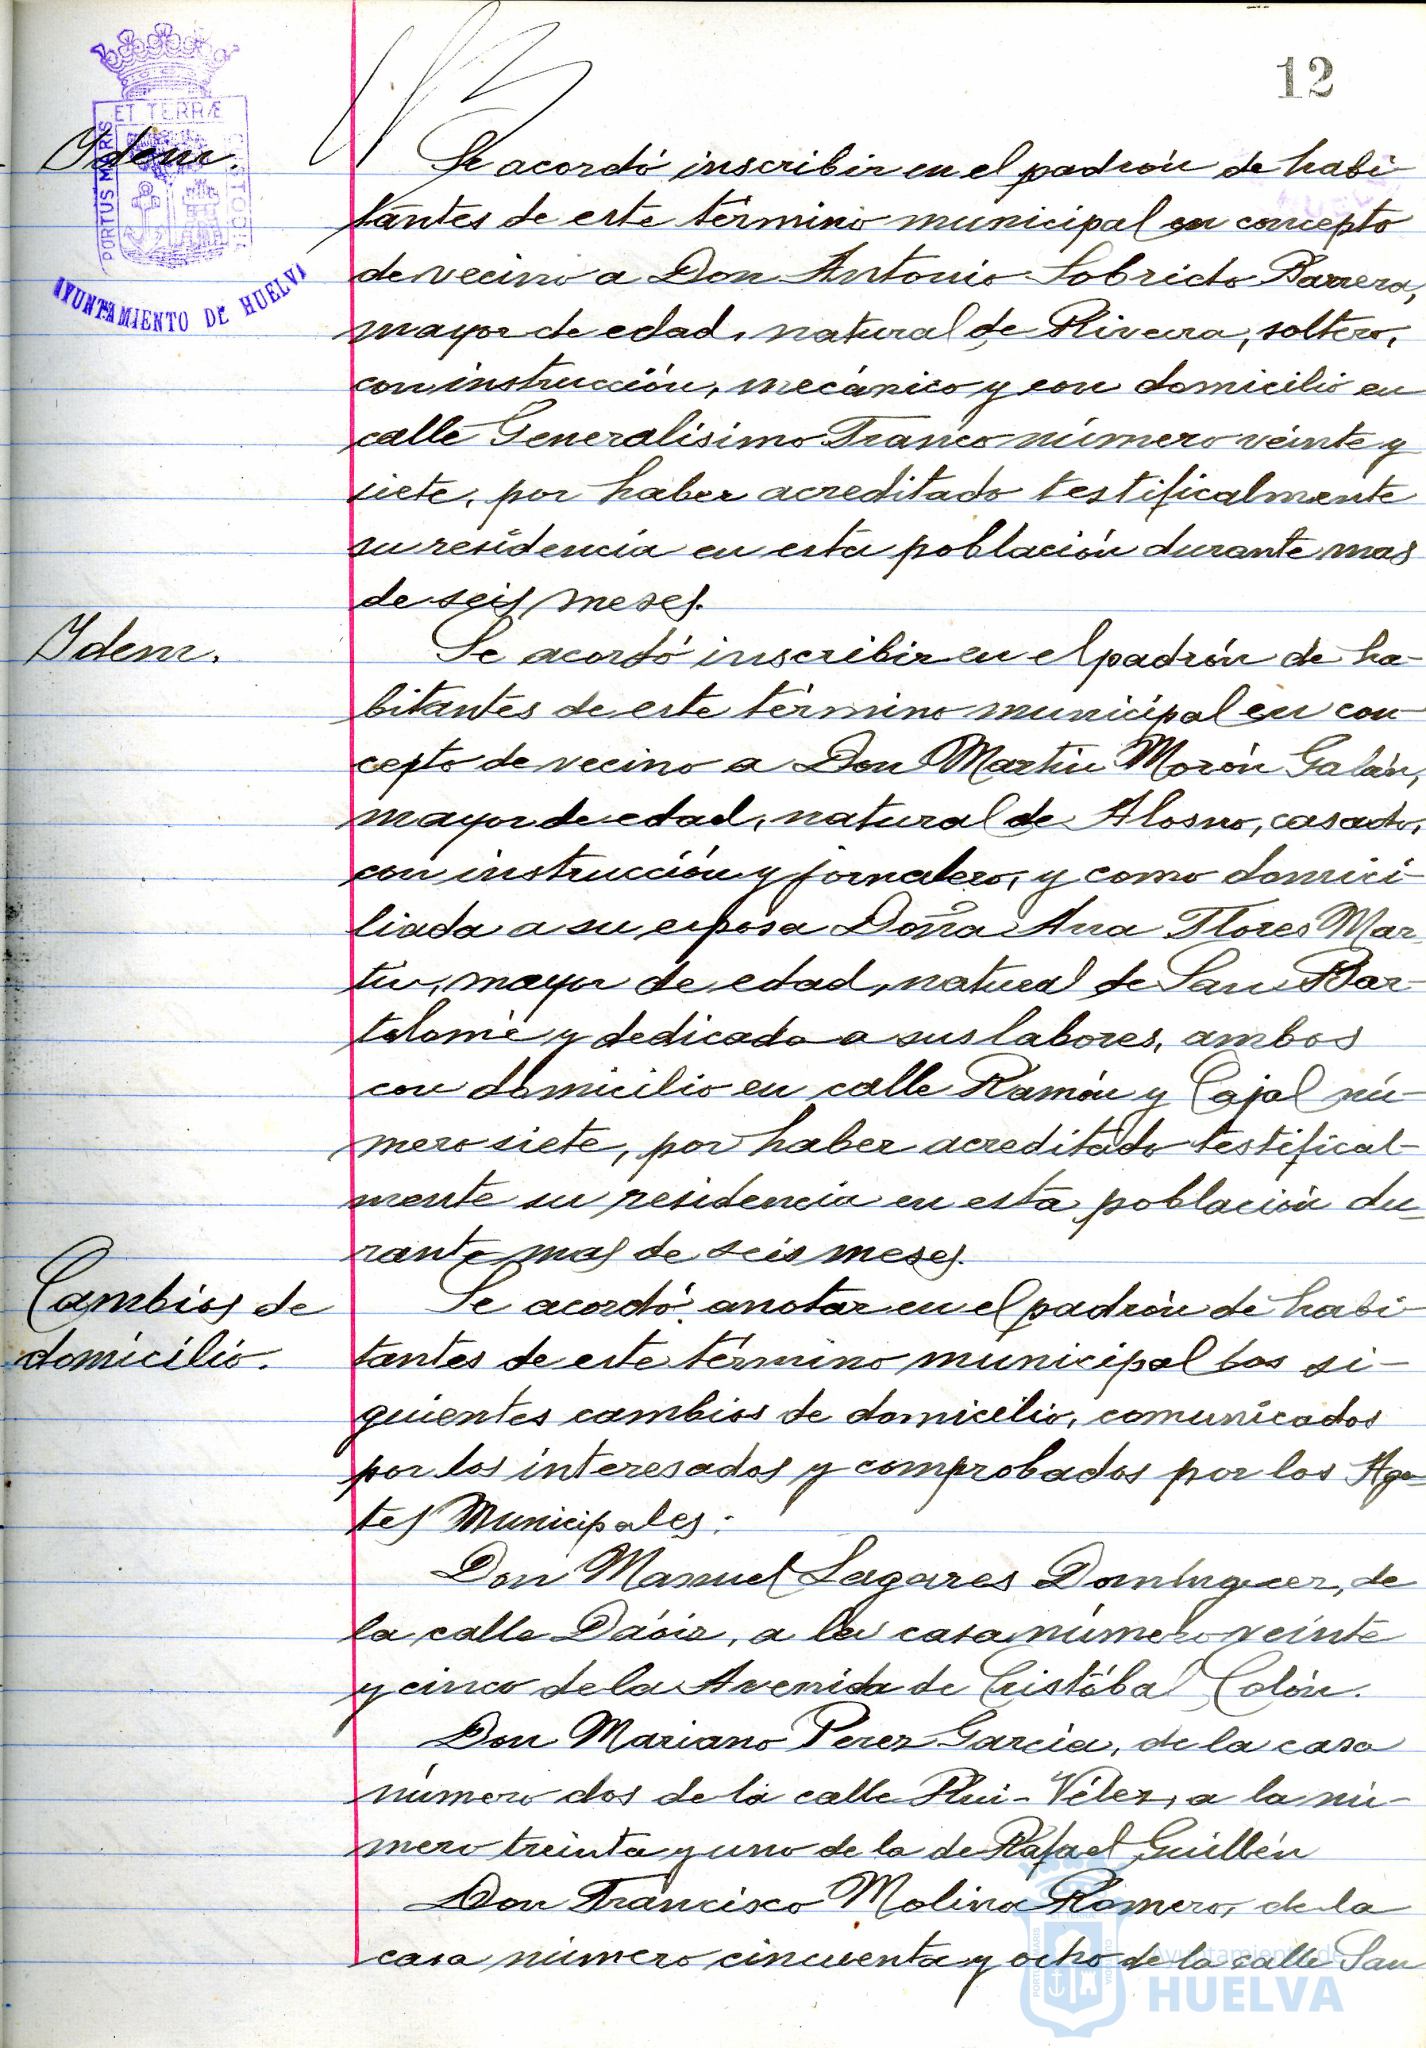 12
ET TERRÆ
PORTUS MARIS
CUSTODIA
AYUNTAMIENTO DE HUELVA
Ydem.
Se acordó inscribir en el padrón de habi
tantes de este término municipal en concepto
de vecino a Don Antonio Sobrido Barrera,
mayor de edad, natural de Riveira, soltero,
con instrucción, mecánico y con domicilio en
calle Generalísimo Franco número veinte y
siete, por haber acreditado testificalmente
su residencia en esta población durante mas
de seis meses.
Ydem.
Se acordó inscribir en el padrón de ha-
bitantes de este término municipal en con-
cepto de vecino a Don Martin Morón Galán,
mayor de edad, natural de Alosno, casado,
con instrucción y jornalero, y como domici-
liada a su esposa Doña Ana Flores Mar-
tin, mayor de edad, natural de San Bar-
tolomé y dedicada a sus labores, ambos
con domicilio en calle Ramón y Cajal nú-
mero siete, por haber acreditado testifical-
mente su residencia en esta población du-
rante mas de seis meses.
Cambios de
domicilio.
Se acordó anotar en el padrón de habi-
tantes de este término municipal los si-
guientes cambios de domicilio, comunicados
por los interesados y comprobados por los Agen
tes Municipales:
Don Manuel Lagares Domínguez, de
la calle Dáoiz, a la casa número veinte
y cinco de la Avenida de Cristóbal Colón.
Don Mariano Perez Garcia, de la casa
número dos de la calle Rui-Vélez, a la nú-
mero treinta y uno de la de Rafael Guillén
Don Francisco Molina Romero, de la
casa número cincuenta y ocho de la calle San
Ayuntamiento de
HUELVA